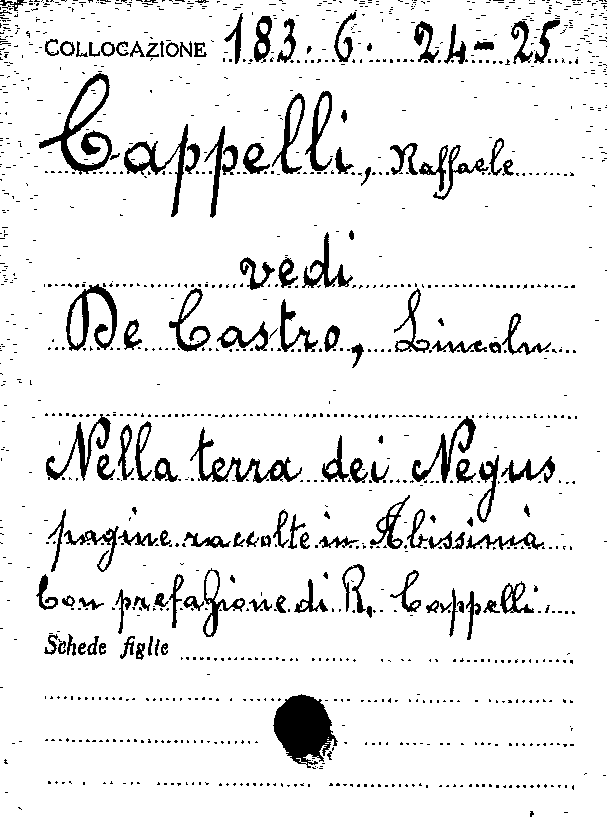 COLLOCAZIONE 183. 6. 24-25
Cappelli, Raffaele
vedi
De Castro, Lincoln
Nella terra dei Negus
pagine raccolte in Abissinia
Con prefazione di R. Cappelli
Schede figlie